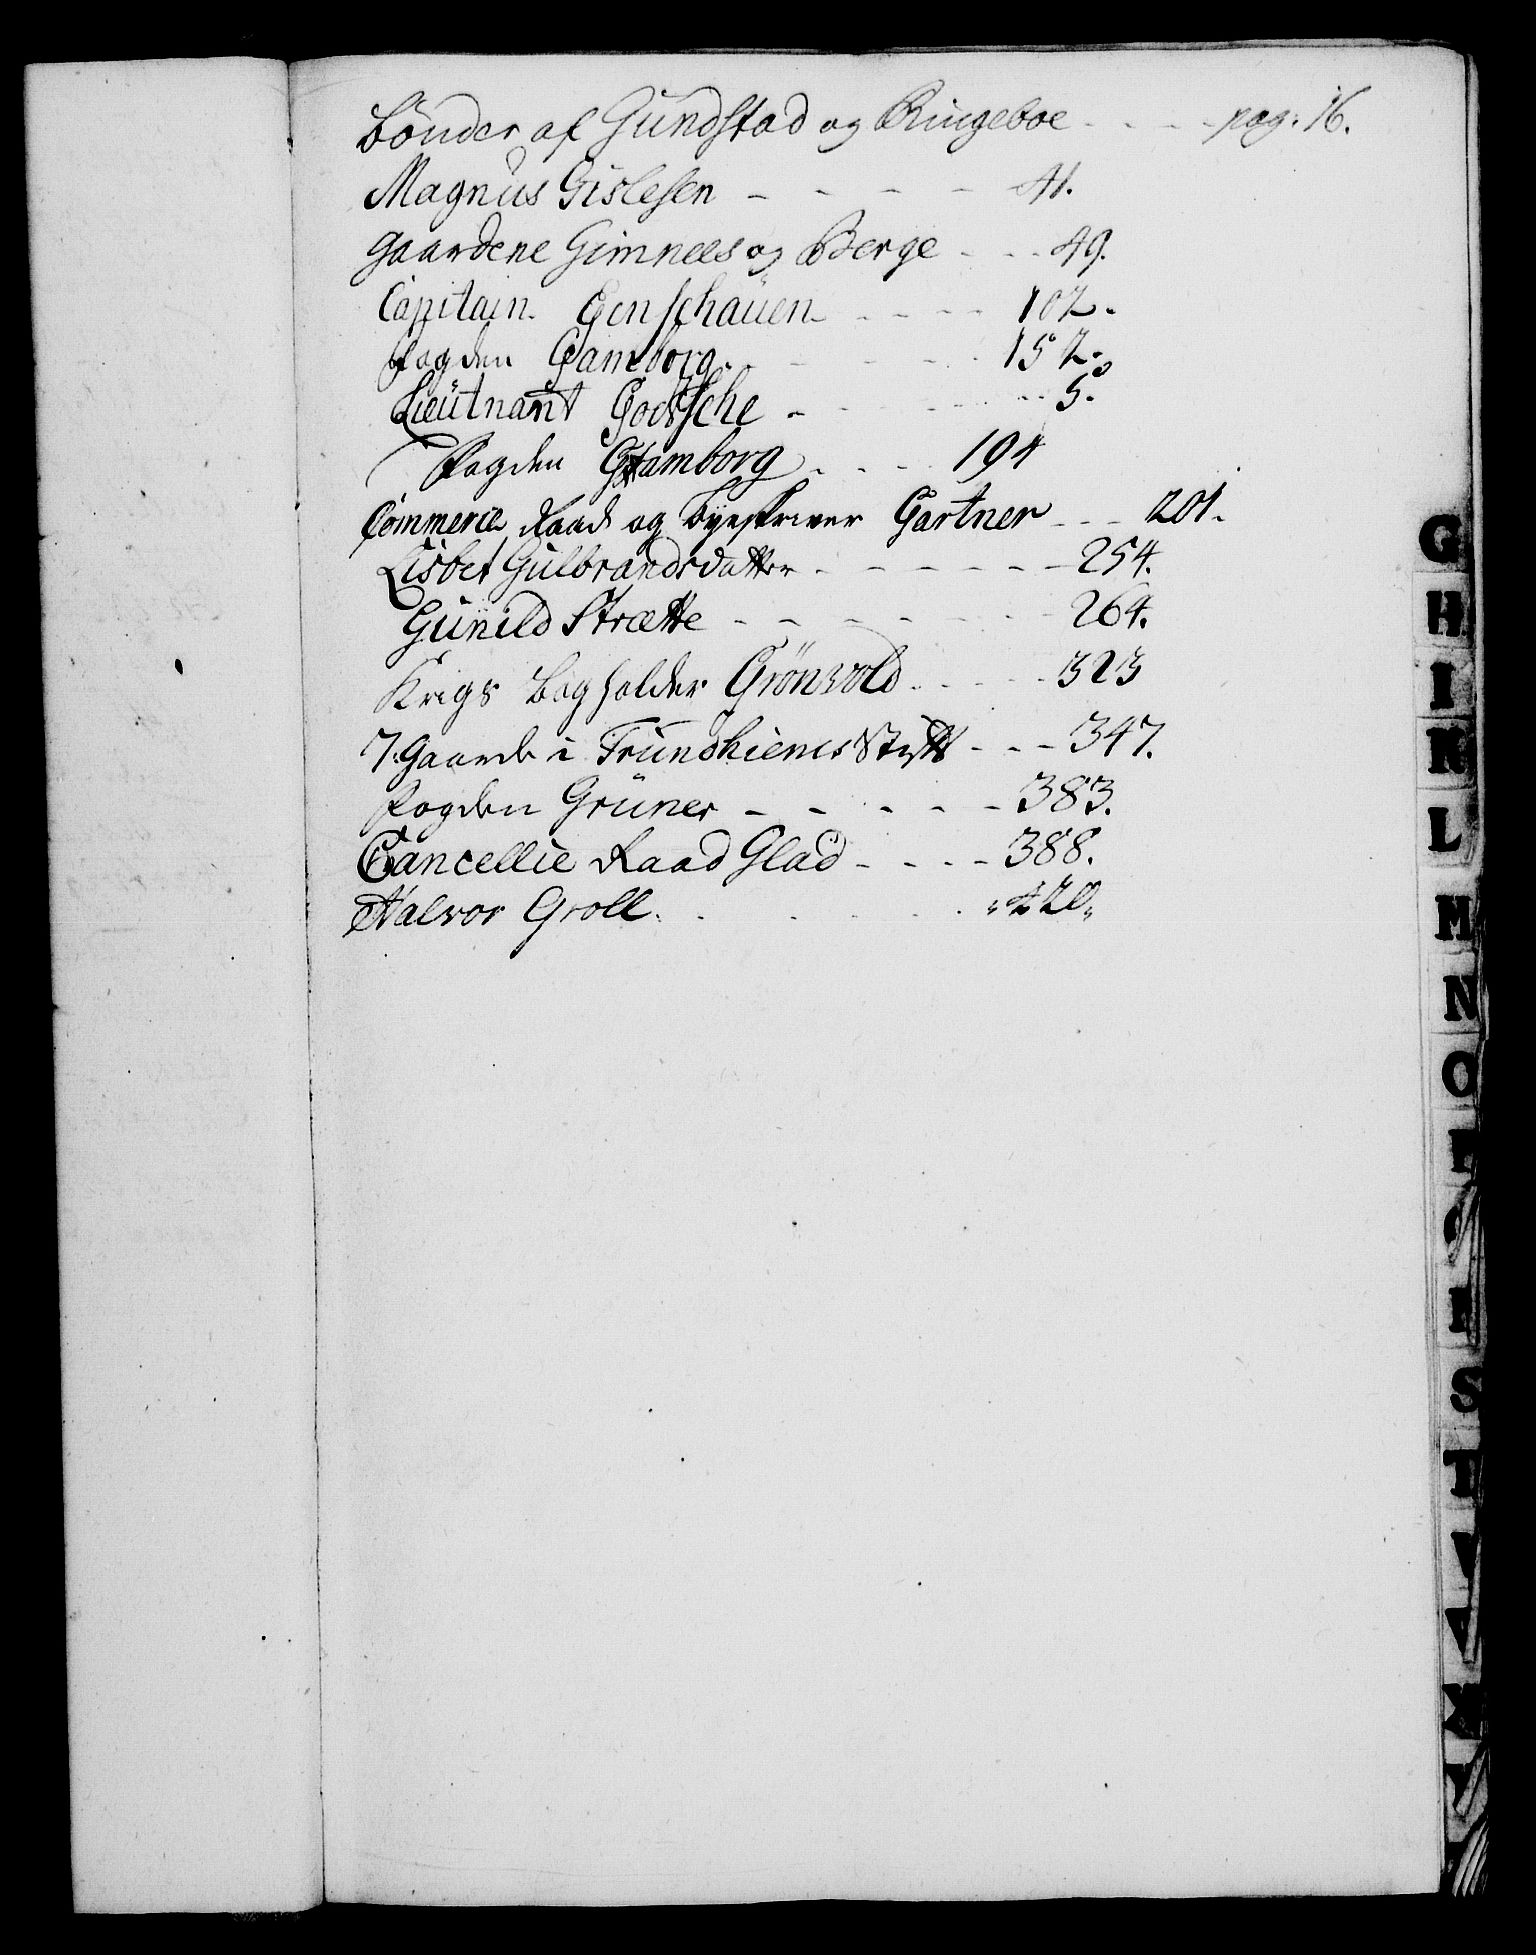 Bønder af Gundstad og Ringeboe - - - - pag: 16.
Magnus Gislesen - - - - 41.
Gaardene Gimnees og Berge - - - 49.
Capitain Genschauen - - - - 102.
fogden Gamborg - - - - 152.
Lieutnant Godtsche - - - - 5.
fogden Gamborg - - - 194
Commerce Raad og Byeskriver Gartner - - - 201.
Lisbet Gulbrandsdatter - - - - - - 254.
Gunild Strætte - - - - - - 264.
Krigs Bogholder Grönvold - - - - 323
7. Gaarde i Trundhiems Stift - - - 347.
fogden Grüner - - - - - 383.
Cancellie Raad Glad - - - - 388.
Halvor Groll. - - - - „420„
G
H
I
K
L
M
N
O
P
Q
R
S
T
V
X
Y